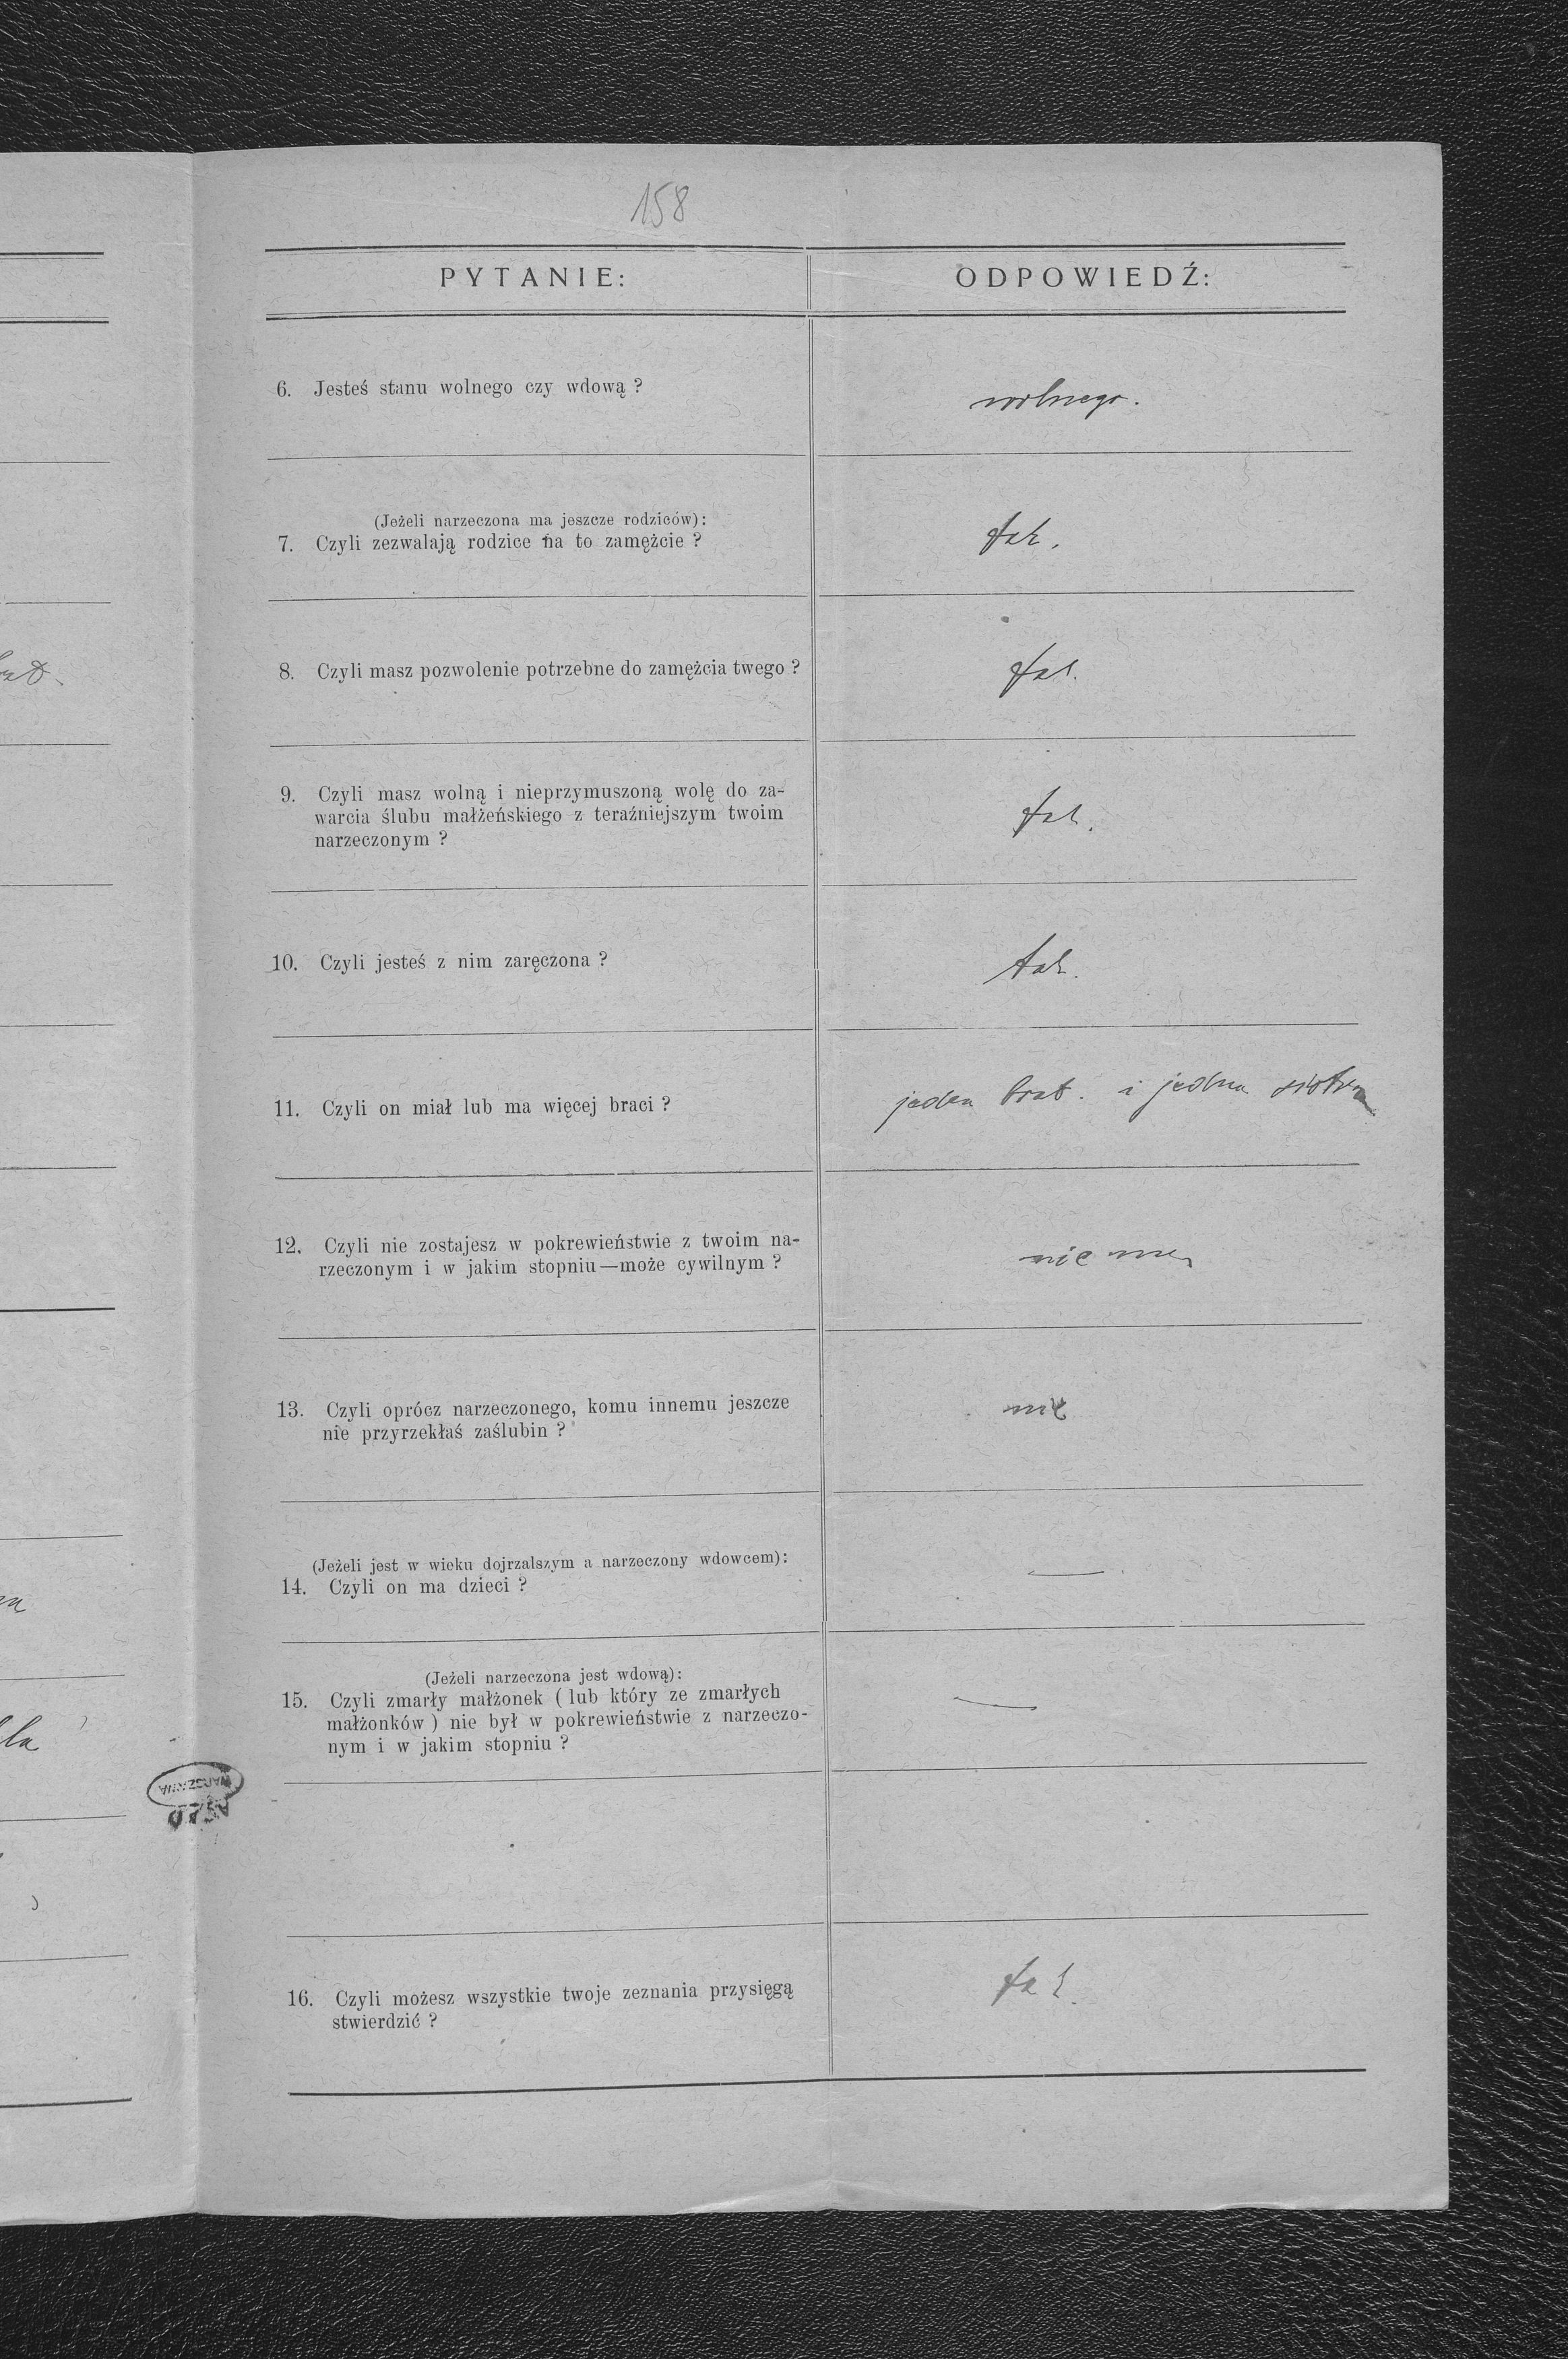 158
PYTANIE:
ODPOWIEDŹ:
6. Jesteś stanu wolnego czy wdową ?
wolnego.
(Jeżeli narzeczona ma jeszcze rodziców):
7. Czyli zezwalają rodzice na to zamężcie ?
tak.
8. Czyli masz pozwolenie potrzebne do zamężcia twego ?
tak.
9. Czyli masz wolną i nieprzymuszoną wolę do za-
warcia ślubu małżeńskiego z teraźniejszym twoim
narzeczonym ?
tak.
10. Czyli jesteś z nim zaręczona ?
tak.
11. Czyli on miał lub ma więcej braci ?
jeden brat. i jedna siostra
12. Czyli nie zostajesz w pokrewieństwie z twoim na-
rzeczonym i w jakim stopniu—może cywilnym ?
nie ma
13. Czyli oprócz narzeczonego, komu innemu jeszcze
nie przyrzekłaś zaślubin ?
nie
(Jeżeli jest w wieku dojrzalszym a narzeczony wdowcem):
14. Czyli on ma dzieci ?
—
(Jeżeli narzeczona jest wdową):
15. Czyli zmarły małżonek ( lub który ze zmarłych
małżonków ) nie był w pokrewieństwie z narzeczo-
nym i w jakim stopniu ?
—
WARSZAWA
16. Czyli możesz wszystkie twoje zeznania przysięgą
stwierdzić ?
tak.